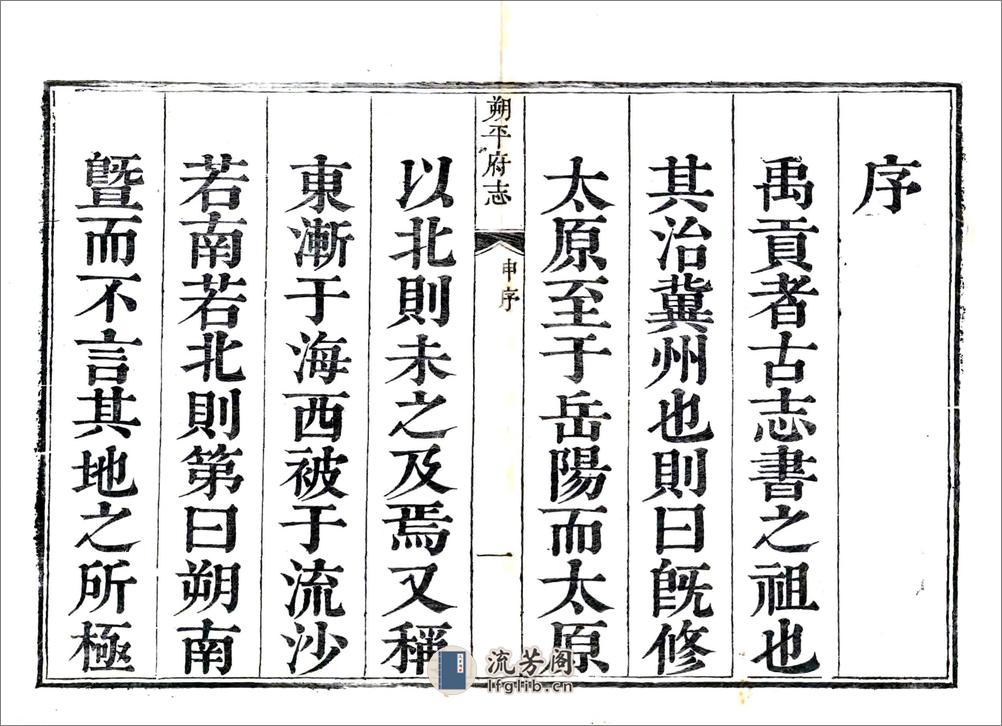 序
禹貢者古志書之祖也
其治冀州也則曰旣修
太原至于岳陽而太原
朔平府志
申序
一
以北則未之及焉又稱
東漸于海西被于流沙
若南若北則第曰朔南
曁而不言其地之所極
流芳阁
lfglib.cn